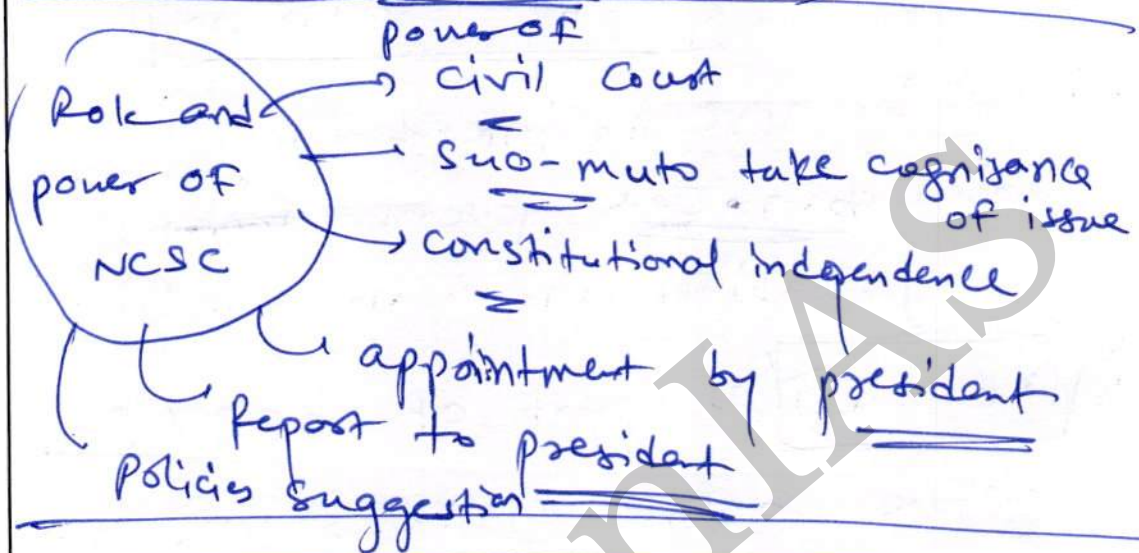 Role and
power of
NCSC
power of
civil Court
suo-muto take cognizance
of issue
constitutional independence
appointment by president
Report to president
Policies suggestion
nIAS